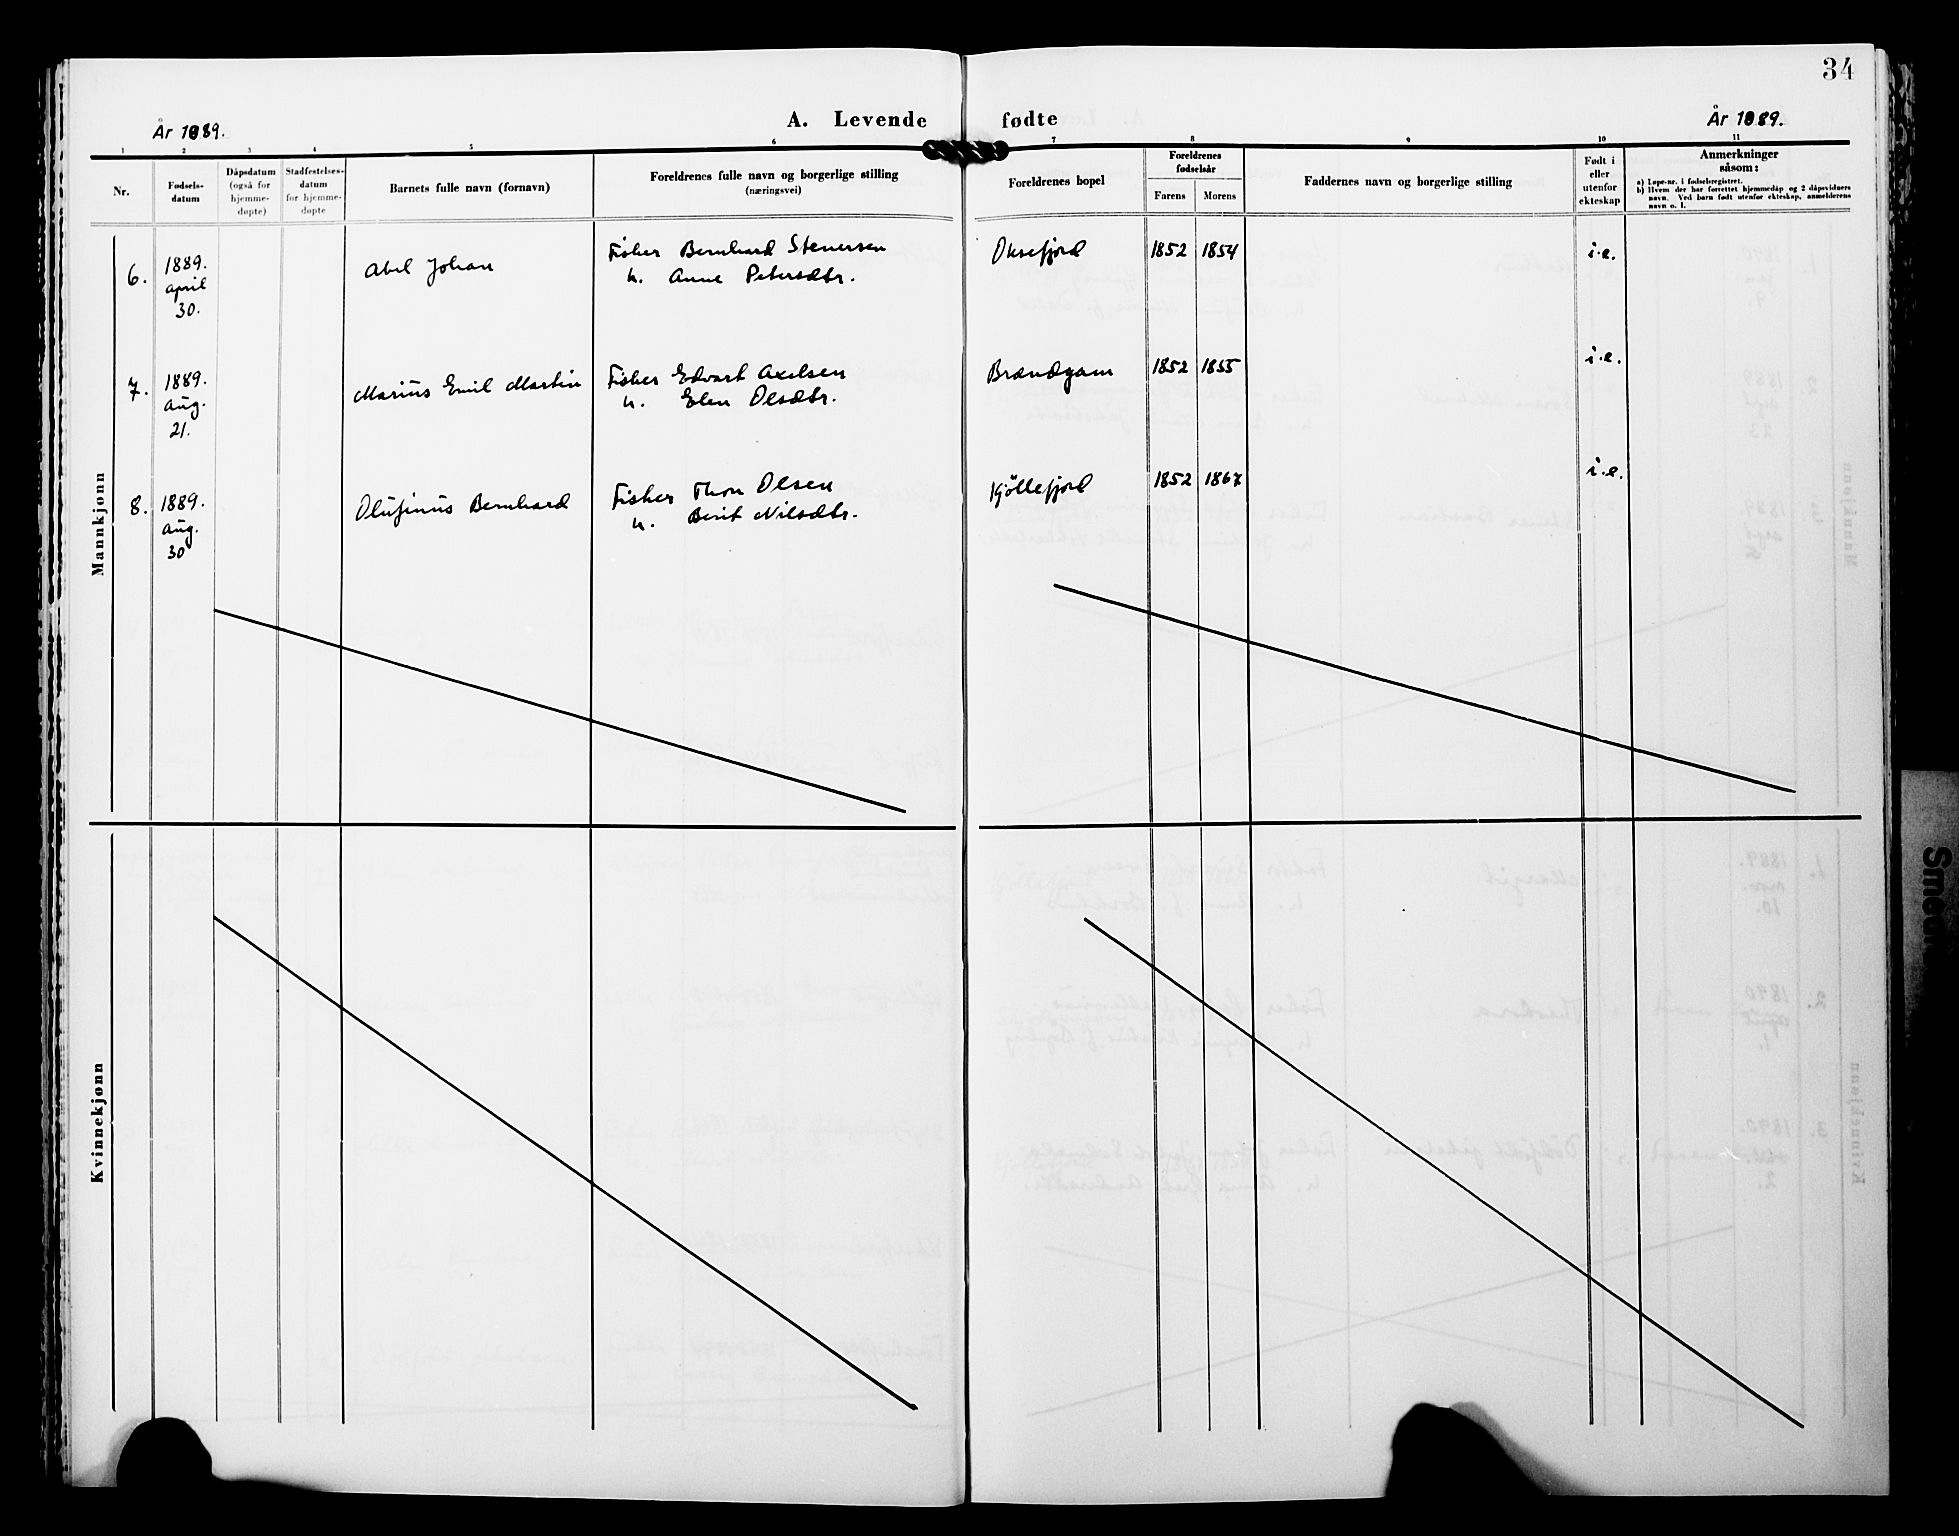 34
År 1889.
A. Levende fødte
År 1889.
1 2 3 4 5 6 7 8 9 10 11
Nr.
Fødsels-
datum
Dåpsdatum
(også for
hjemme-
døpte)
Stadfestelses-
datum
for hjemme-
døpte
Barnets fulle navn (fornavn)
Foreldrenes fulle navn og borgerlige stilling
(næringsvei)
Foreldrenes bopel
Foreldrenes
fødselsår
Farens Morens
Faddernes navn og borgerlige stilling
Født i
eller
utenfor
ekteskap
Anmerkninger
såsom:
a) Løpe-nr. i fødselsregistret.
b) Hvem der har forrettet hjemmedåp og 2 dåpsvidners
navn. Ved barn født utenfor ekteskap, anmelderens
navn o. l.
Mannkjønn
6. 1889. april 30. Abel Johan Fisker Bernhard Stenersen Oksefjord 1852 1854 i.e.
h. Anne Petersdtr.
7. 1889. Aug. 21. Marius Emil Martin Fisker Edvart Axelsen Brændgam 1852 1855 i.e.
h. Elen Olsdtr.
8. 1889. Aug. 30 Olufinus Bernhard Fisker Thon Olsen Kjöllefjord 1852 1867 i.e.
h. Berit Nilsdtr.
Kvinnekjønn